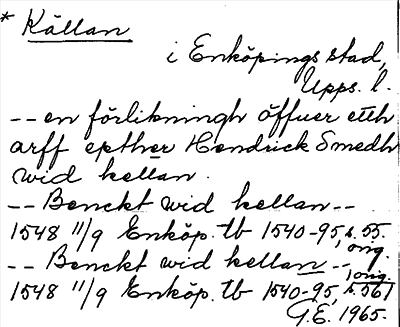 * Källan
i Enköpings stad,
Upps. l.
-- en förlikningh öffuer etth
arff epther Hendrick Smedh
wid kellan.
-- Benckt wid kellan --
1548 11/9 Enköp. tb 1540-95, s. 55.
orig.
-- Benckt wid kellan --
1548 11/9 Enköp. tb 1540-95, s. 561
orig.
G.E. 1965.